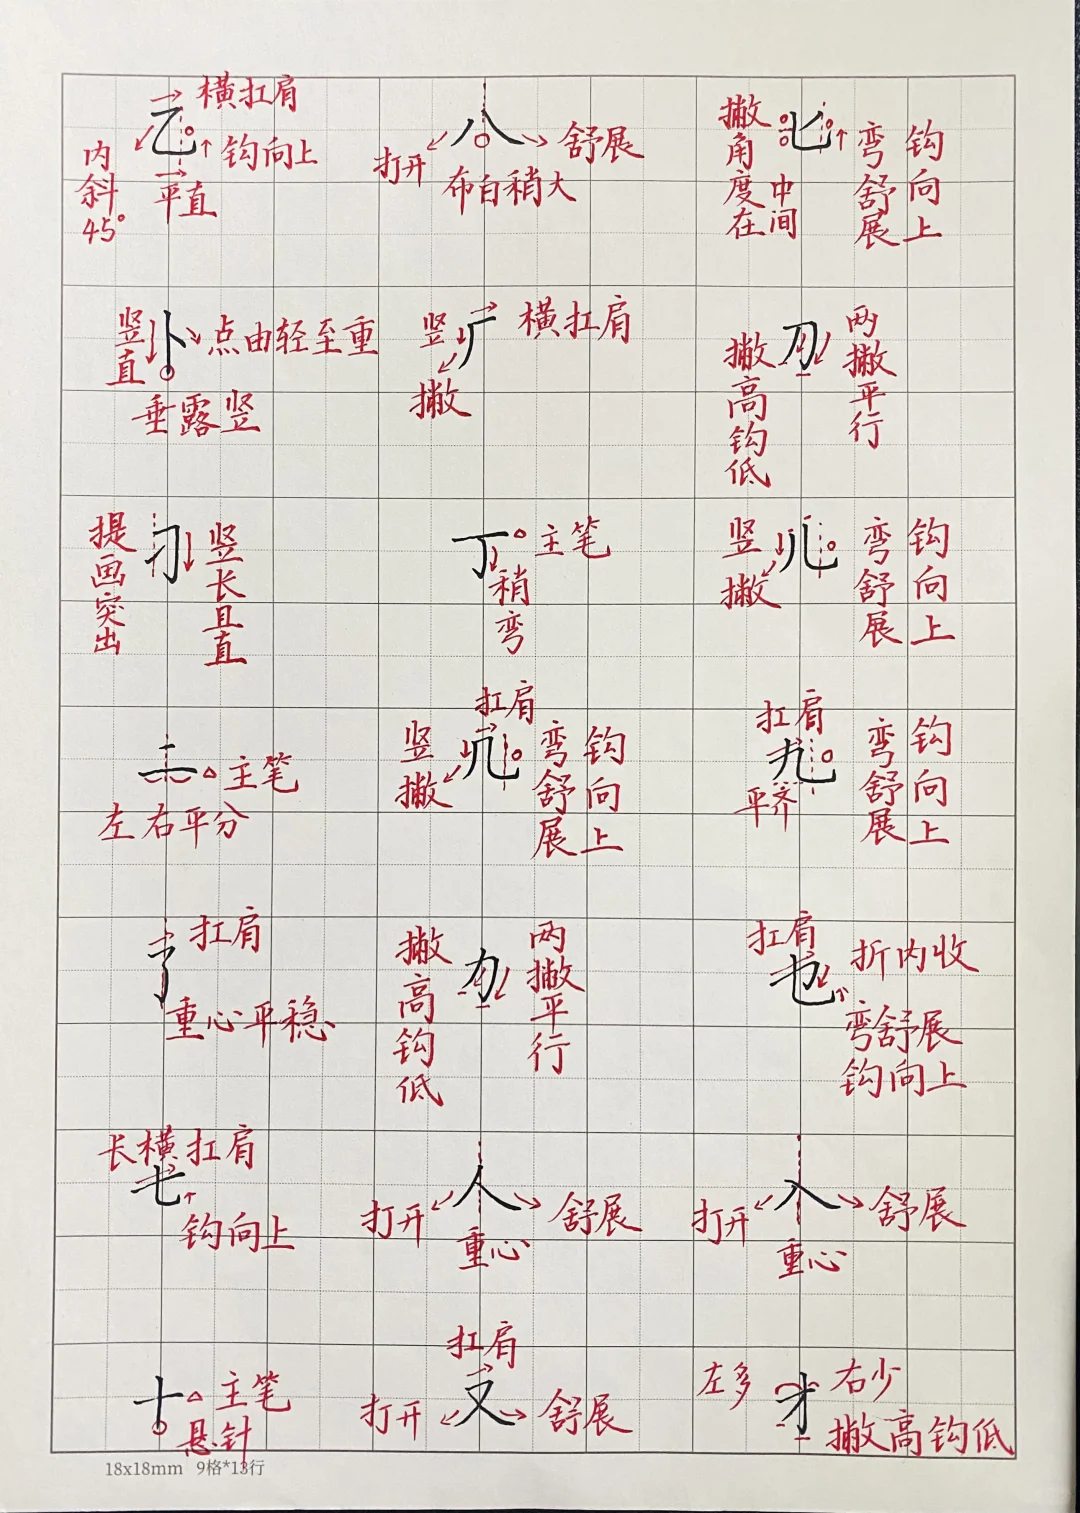 乙 横扛肩 内斜45° 钩向上 平直
八 打开 舒展 布白稍大
匕 撇角度在中间 弯舒展 钩向上
卜 竖直 点由轻至重 垂露竖
厂 竖撇 横扛肩
刀 撇高钩低 两撇平行
刁 提画突出 竖长且直
丁 主笔 稍弯
儿 竖撇 弯舒展 钩向上
二 主笔 左右平分
几 扛肩 竖撇 弯舒展 钩向上
九 扛肩 平齐 弯舒展 钩向上
了 扛肩 重心平稳
力 撇高钩低 两撇平行
也 扛肩 折内收 弯舒展 钩向上
七 长横扛肩 钩向上
人 打开 舒展 重心
入 打开 舒展 重心
十 主笔 悬针
又 扛肩 打开 舒展
才 左多 右少 撇高钩低
18x18mm 9格*13行